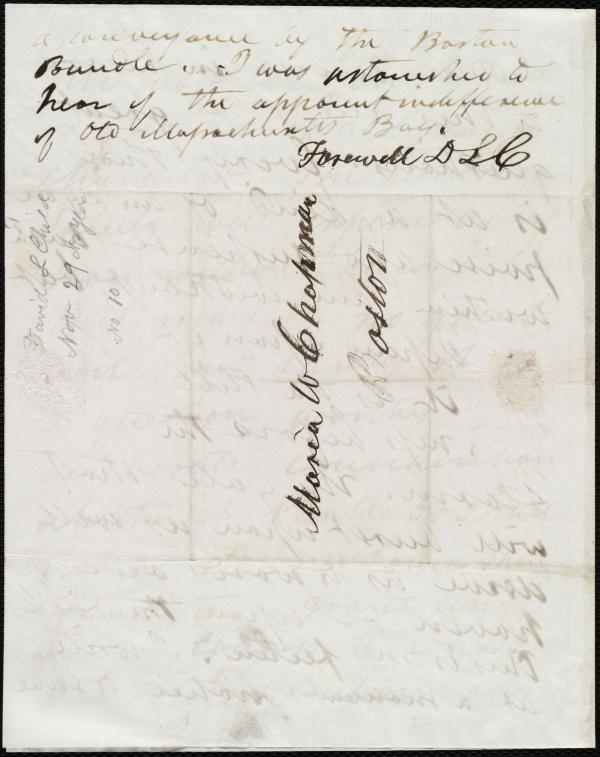 a conveyance by the Boston
Bundle. I was astonished to
hear of the apparent indifference
of Old Massachusetts Bay.
Farewell D L C
Maria W Chapman
Boston
David L Child
Nov 29
No 10